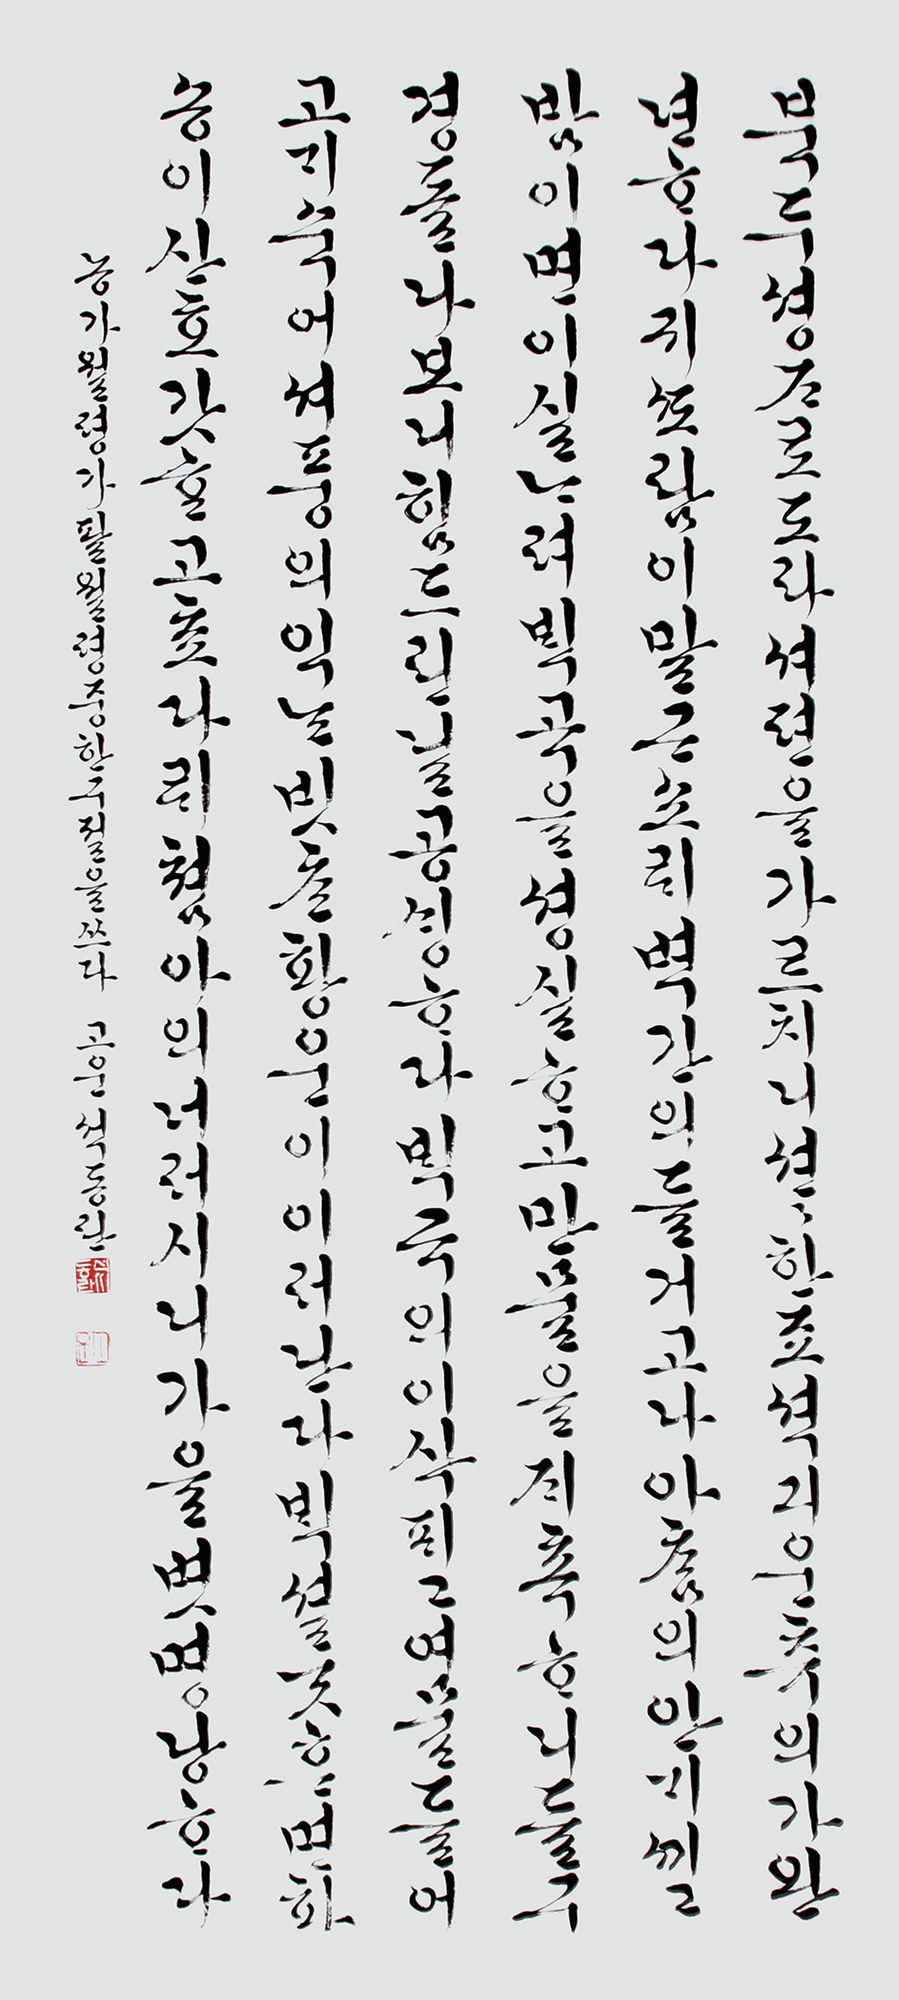 북두셩ᄌᆞ로도라셔텬을가르치니션〻한죠셕긔운츄의가완
년ᄒᆞ다귀ᄯᅩ람이말근쇼ᄅᆡ벽간의들거고나아ᄎᆞᆷ의안ᄀᆡᄭᅵ고
밤이면이실ᄂᆞ려ᄇᆡᆨ곡을셩실ᄒᆞ고만물을ᄌᆡ촉ᄒᆞ니들구
경돌나보니힘드린닐공ᄉᆡᆼᄒᆞ다ᄇᆡᆨ곡의이삭픠고여물들어
고ᄀᆡ숙어셔풍의익ᄂᆞᆫ빗ᄎᆞᆫ황운이이러난다ᄇᆡᆨ셜ᄀᆞᆺᄒᆞᆫ면화
숑이산호갓흔고쵸다ᄅᆡ쳠아의너러시니가을볏명낭ᄒᆞ다
농가월령가팔월령중한구절을쓰다 고운석동란